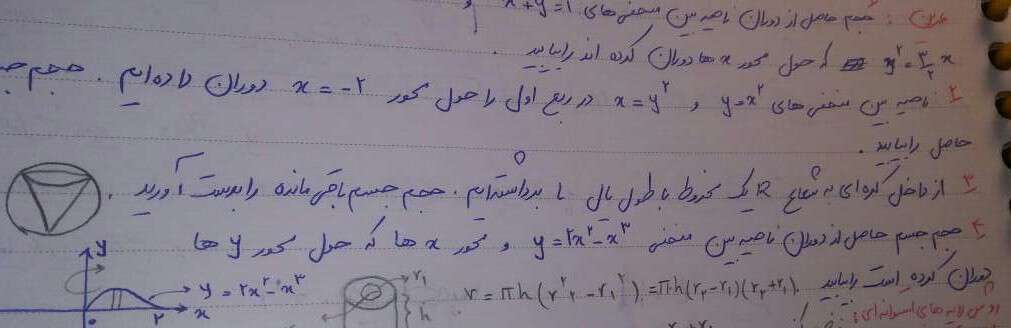 تمرین: حجم حاصل از دوران ناحیه بین منحنی‌های x+y=1 و
y²=۳/۲ x که حول محور x ها دوران کرده اند را بیابید.
۲ ناحیه بین منحنی های y=x² و x=y² در ربع اول را حول محور x=-۲ دوران داده‌ایم. حجم
حاصل را بیابید.
۳ از داخل کره‌ای به شعاع R یک مخروط با طول یال برداشته‌ایم. حجم جسم باقی مانده را بدست آورید.
۴ حجم جسم حاصل از دوران ناحیه بین منحنی y=۲x²-x³ و محور x ها که حول محور y ها
دوران کرده است را بیابید.
v=πh(r₂²-r₁²)=πh(r₂-r₁)(r₂+r₁)
r₁
h
y
y=۲x²-x³
x
۰ ۲
روش لایه های استوانه ای: